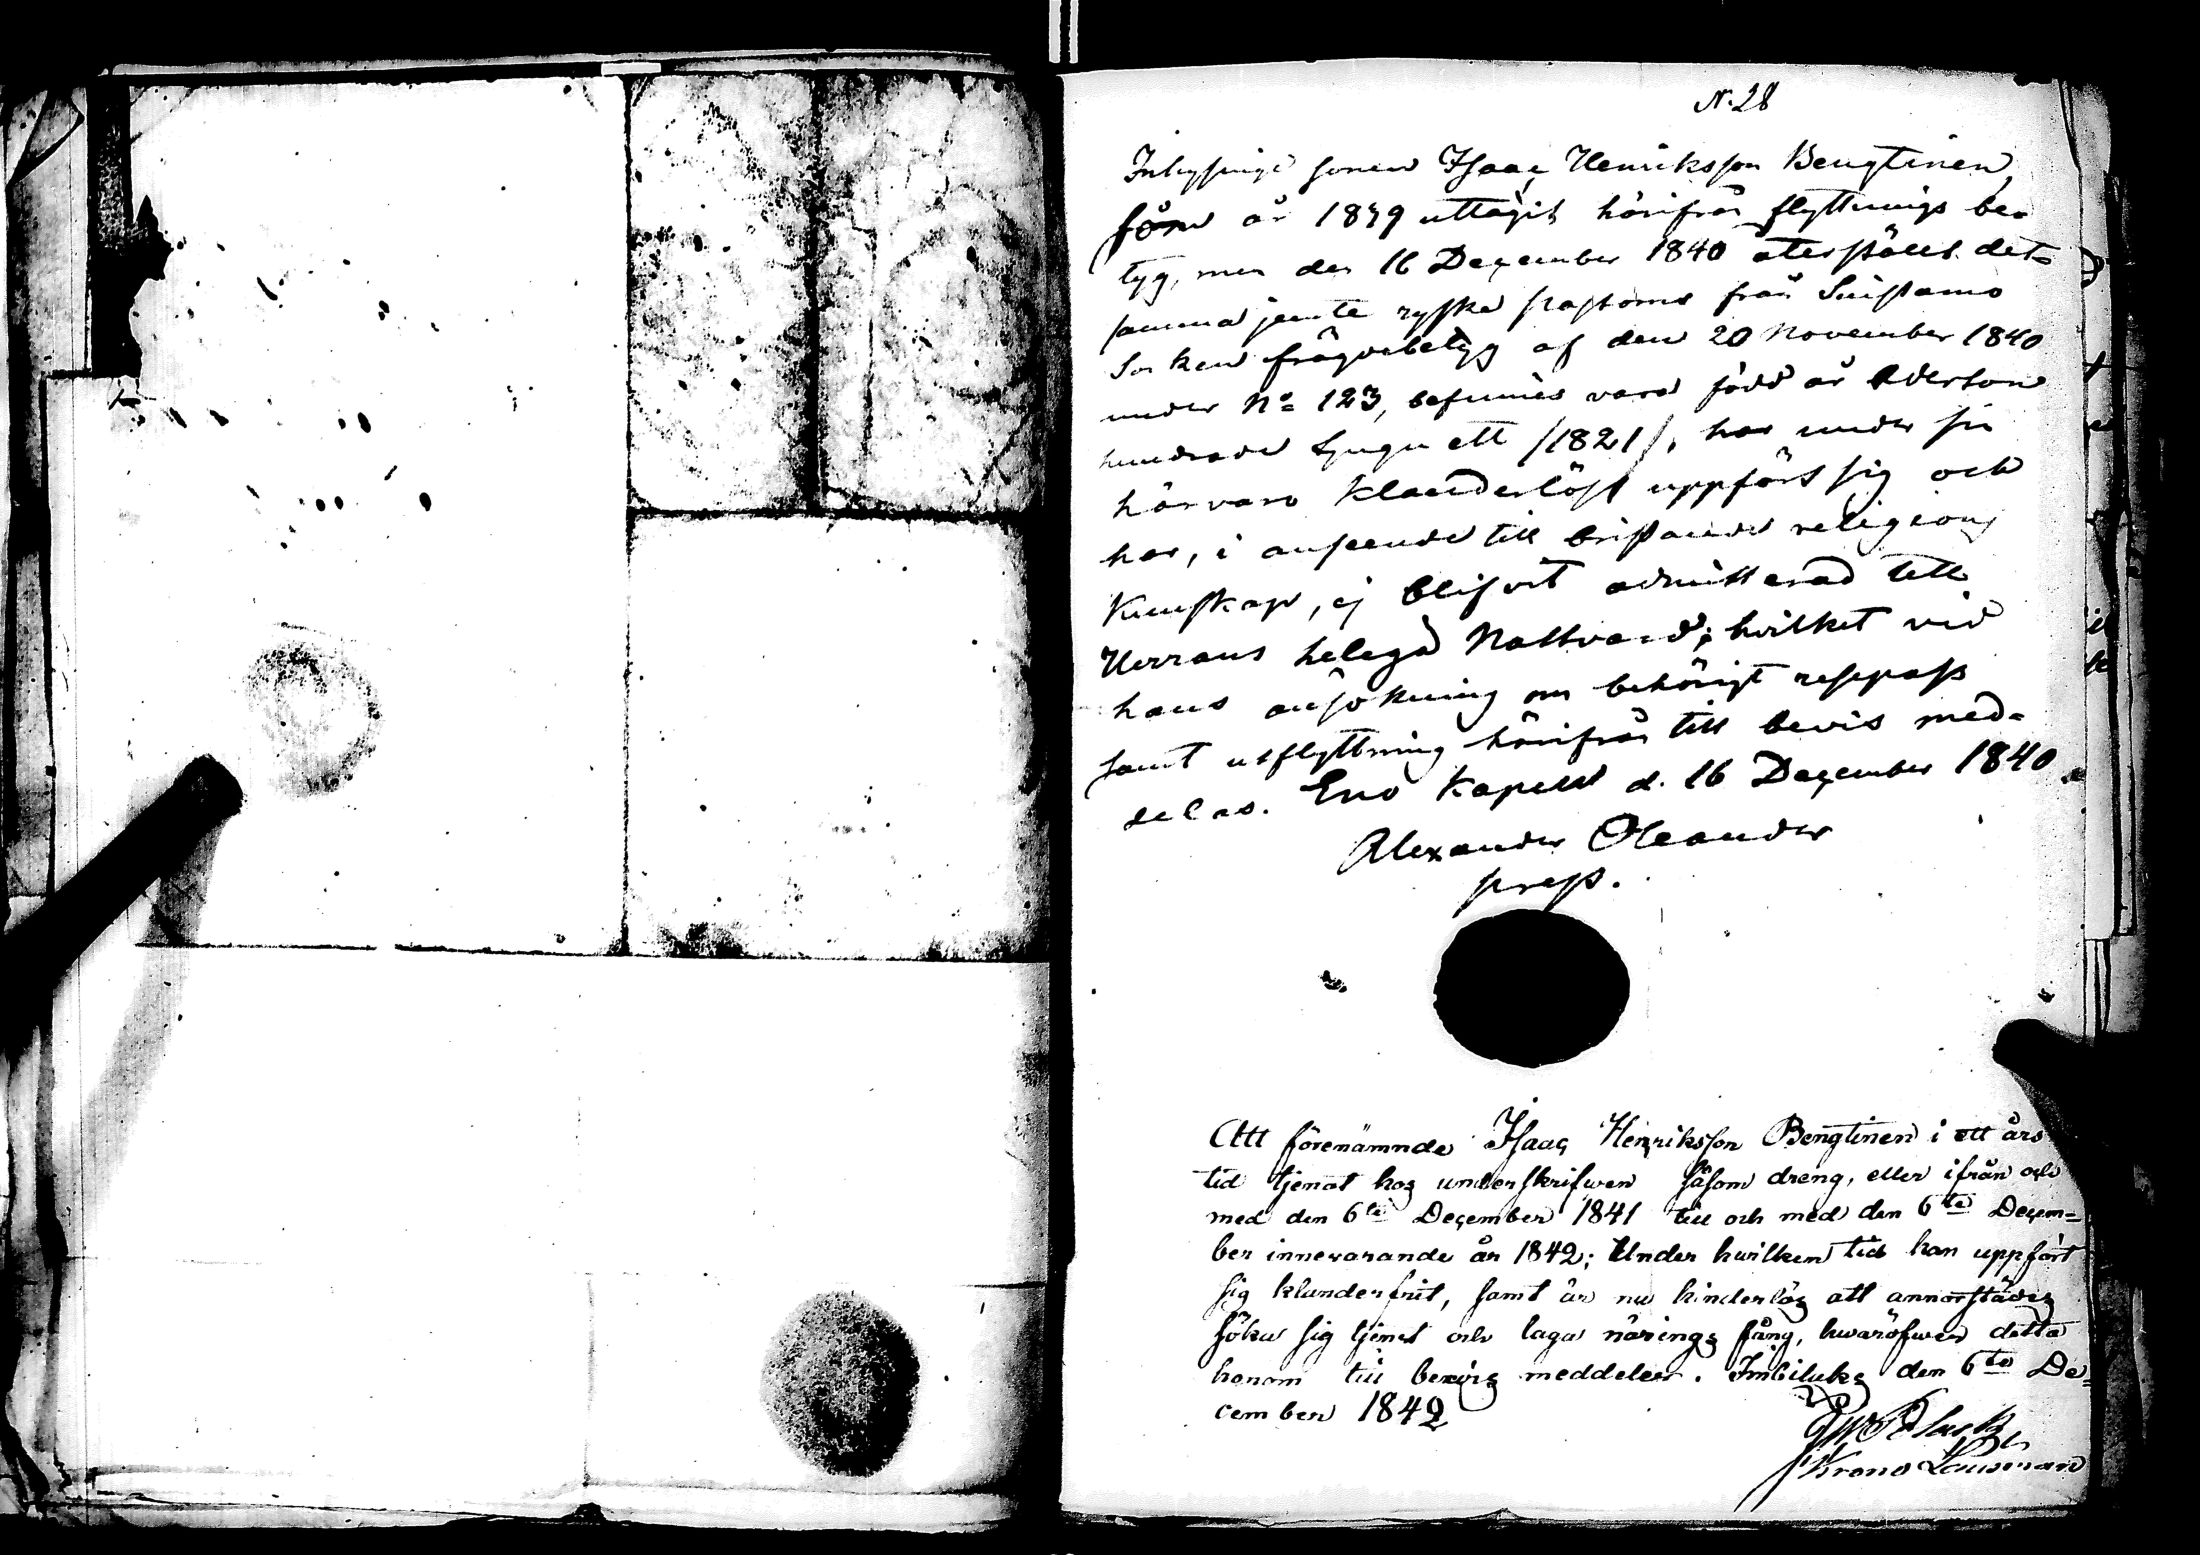 N. 28
Inhysinge sonen Isaac Henriksson Bengtinen,
som år 1839 uttagit härifrån flyttnings be-
tyg, men den 16 December 1840 återstält det-
samma jemte ryske pastorns från Suistamo
Socken frägdebetyg af den 20 November 1840
under No 123, befunnes vara född år Aderton
hundrade tjugu ett /1821/, har under sin
härvaro klanderlöst uppfört sig och
har, i anseende till bristande religions
kunskap, ej blifvit admitterad till
Herrans helega Nattvard; hvilket vid
hans ansökning om behörigt respass
samt utflyttning härifrån till bevis med-
delas. Eno Kapell d. 16 December 1840
Alexander Oleander
Att förenämnde Isaac Henriksson Bengtinen i ett års
tid tjenat hos underskrifwen såsom dreng, eller ifrån och
med den 6te December 1841 till och med den 6te Decem=
ber innevarande år 1842; Under hwilken tid han uppfört
sig klanderfritt, samt är nu hinderlös att annorstädes
söka sig tjenst och laga närings fång, hwaröfwer detta
honom till bewis meddeles. Imbilaks den 6te De=
cember 1842
Krono Länsman